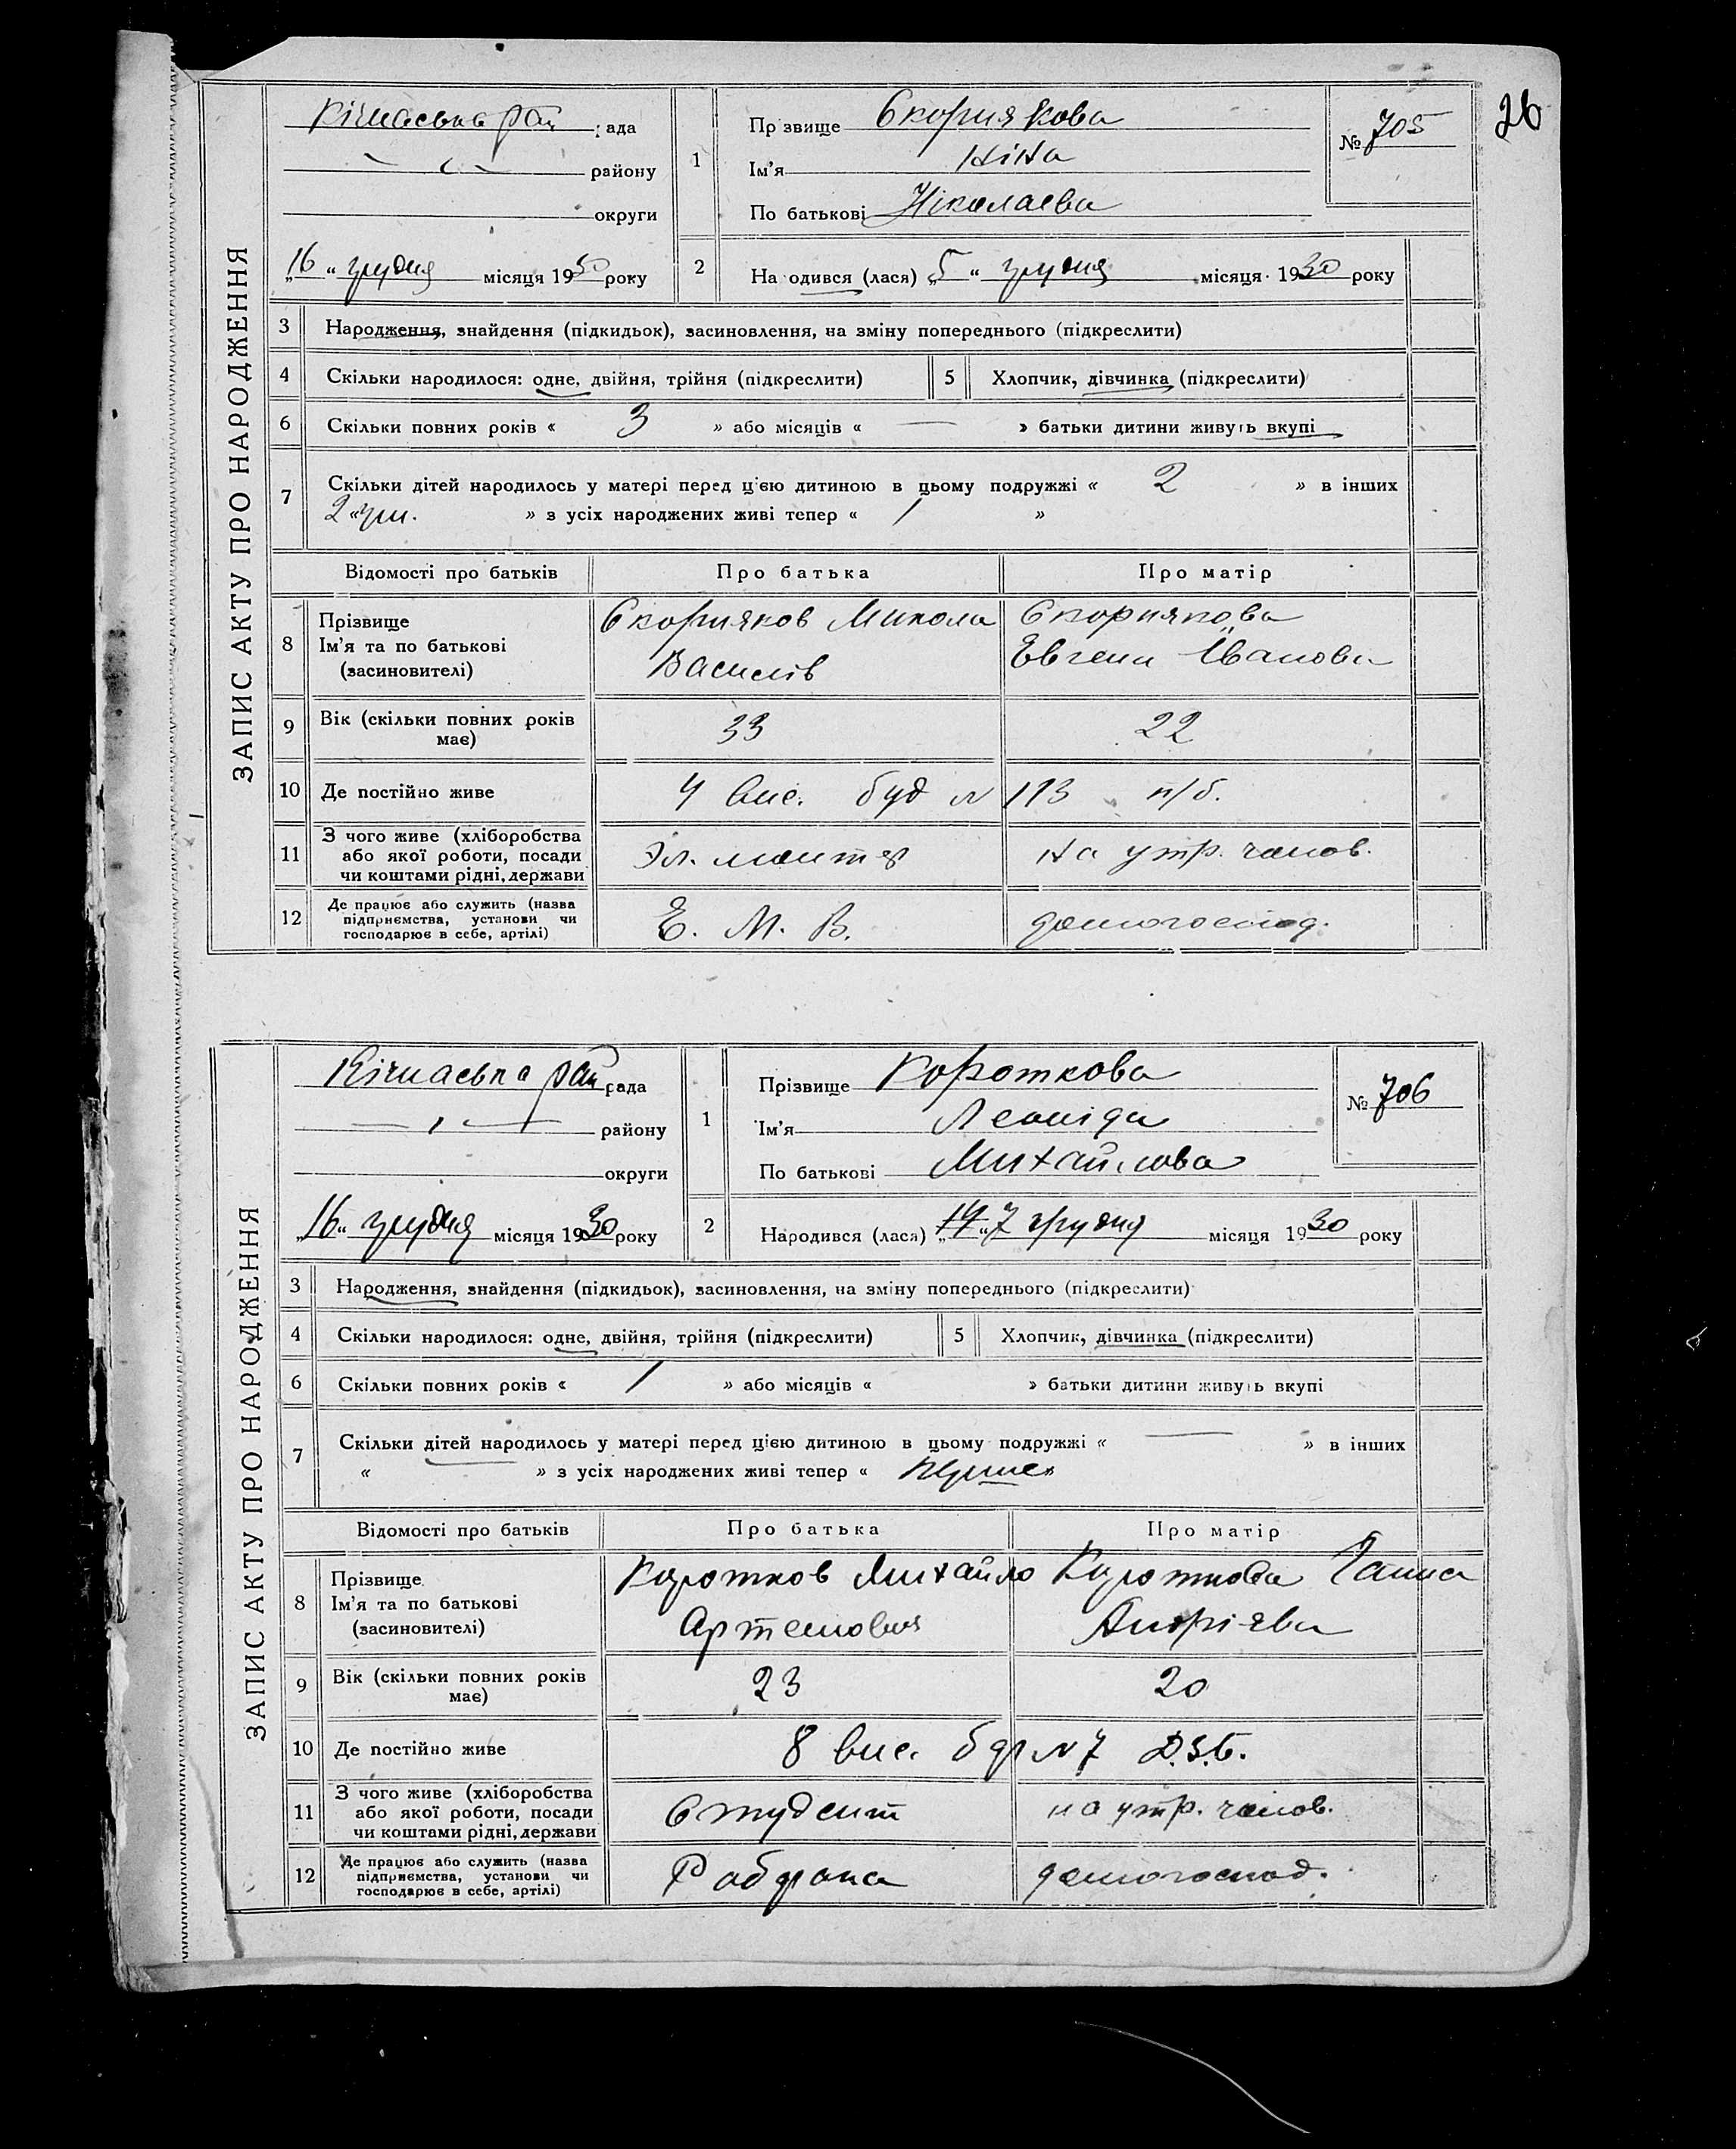 26
ЗАПИС АКТУ ПРО НАРОДЖЕННЯ
Кічкаська рай рада
району
округи
„16“ грудня місяця 1930 року
1
Прзвище Скорнякова
Ім'я Ніна
По батькові Ніколаева
№ 705
2
На одився (лася) „5“ грудня місяця 1930 року
3 Народження, знайдення (підкидьок), засиновлення, на зміну попереднього (підкреслити)
4 Скільки народилося: одне, двійня, трійня (підкреслити) 5 Хлопчик, дівчинка (підкреслити)
6 Скільки повних років « 3 » або місяців « — » батьки дитини живуть вкупі
7 Скільки дітей народилось у матері перед цією дитиною в цьому подружжі « 2 » в інших
2 «ум. » з усіх народжених живі тепер « 1 »
Відомості про батьків Про батька Про матір
8 Прізвище Скорняков Микола Скорнякова
Ім'я та по батькові Василів Евгени Іванова
(засновителі)
9 Вік (скільки повних років 33 22
має)
10 Де постійно живе 4 вис. буд № 113 п/б.
11 З чого живе (хліборобства Эл. монтер на утр. чолов.
або якої роботи, посади
чи коштами рідні, держави
12 Де працює або служить (назва Е. М. В. домогоспод.
підприємства, установи чи
господарює в себе, артілі)
ЗАПИС АКТУ ПРО НАРОДЖЕННЯ
Кічкаська рай рада
району
округи
„16“ грудня місяця 1930 року
1
Прізвище Короткова
Ім'я Леоніда
По батькові Михайлова
№ 706
2
Народився (лася) „14“ 7 грудня місяця 1930 року
3 Народження, знайдення (підкидьок), засиновлення, на зміну попереднього (підкреслити)
4 Скільки народилося: одне, двійня, трійня (підкреслити) 5 Хлопчик, дівчинка (підкреслити)
6 Скільки повних років « 1 » або місяців « » батьки дитини живуть вкупі
7 Скільки дітей народилось у матері перед цією дитиною в цьому подружжі « — » в інших
« » з усіх народжених живі тепер « Перше»
Відомості про батьків Про батька Про матір
8 Прізвище Коротков Михайло Короткова Ганна
Ім'я та по батькові Артемович Андріева
(засиновителі)
9 Вік (скільки повних років 23 20
має)
10 Де постійно живе 8 вис. бар № 7 Д.З.Б.
11 З чого живе (хліборобства Студент на утр. чолов.
або якої роботи, посади
чи коштами рідні, держави
12 Де працює або служить (назва Рабфака домогоспод.
підприємства, установи чи
господарює в себе, артілі)